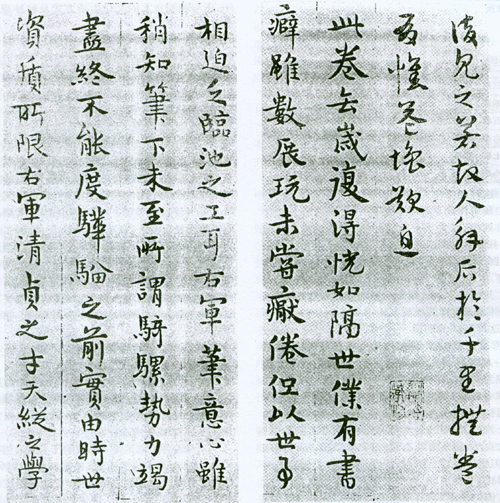 復見之若故人解后於千里卷
增歎
此卷去歲復得恍如隔世僕有書
癖雖數展玩未嘗厭倦但以世事
相迫乏臨池之工耳右軍筆意心雖
稍知筆下未至所謂騎騾勢力竭
盡終不能度驊騮之前實由時世
資質所限右軍清貞之才天縱之學